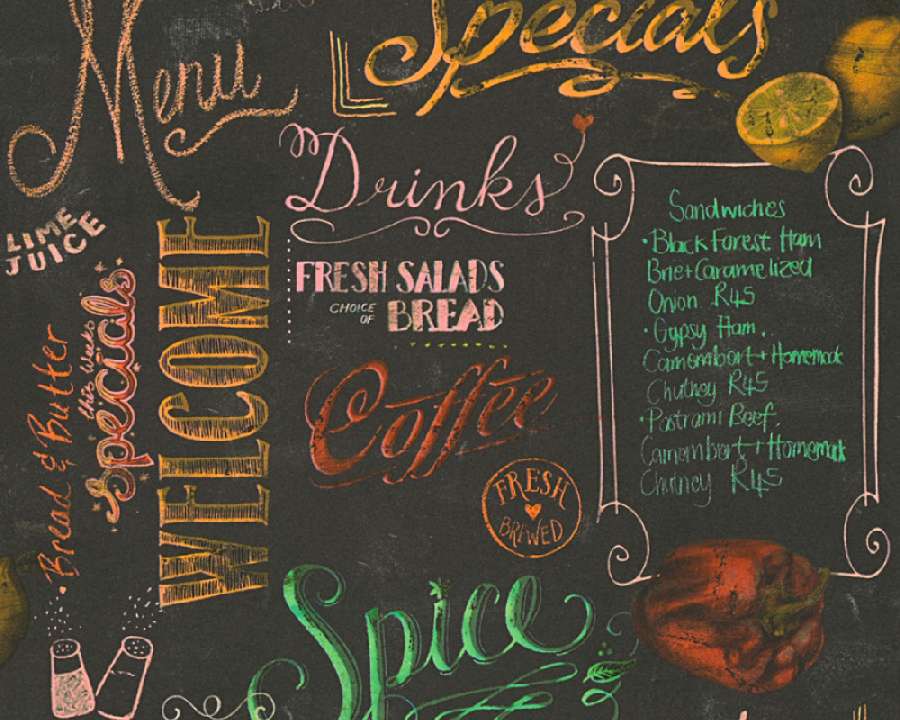 Menu
Specials
Drinks
LIME
JUICE
FRESH SALADS
CHOICE
OF
BREAD
Bread & Butter
this Weeks
Specials
WELCOME
Coffee
FRESH
BREWED
Spice
Sandwiches
• Black Forest Ham
Brie+Caramelized
Onion R45
• Gypsy Ham.
Camembert + Homemade
Chutney R45
• Pastrami Beef.
Camembert + Homemade
Chutney R45